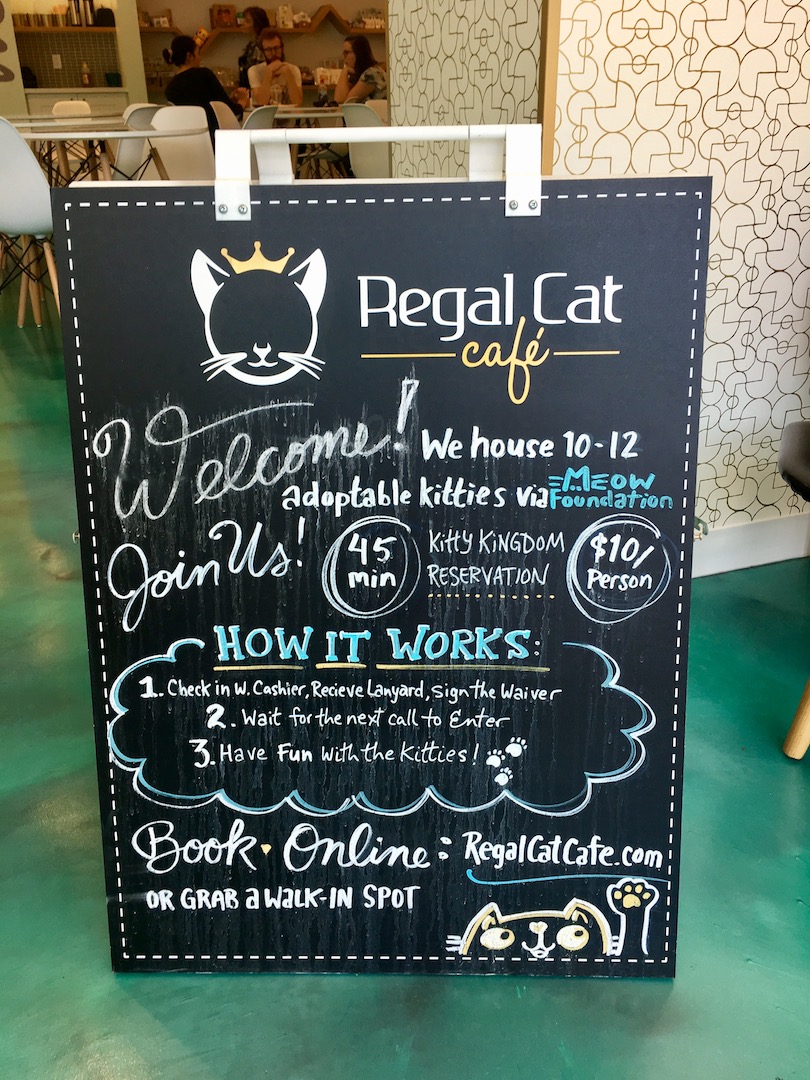 Regal Cat
café
Welcome! We house 10-12
adoptable kitties via MEOW Foundation
Join Us! 45 min KITTY KINGDOM RESERVATION $10/ Person
HOW IT WORKS:
1. Check in W. Cashier, Recieve Lanyard, Sign the Waiver
2. Wait for the next call to Enter
3. Have Fun With the Kitties!
Book Online: RegalCatCafe.com
OR GRAB a WALK-IN SPOT